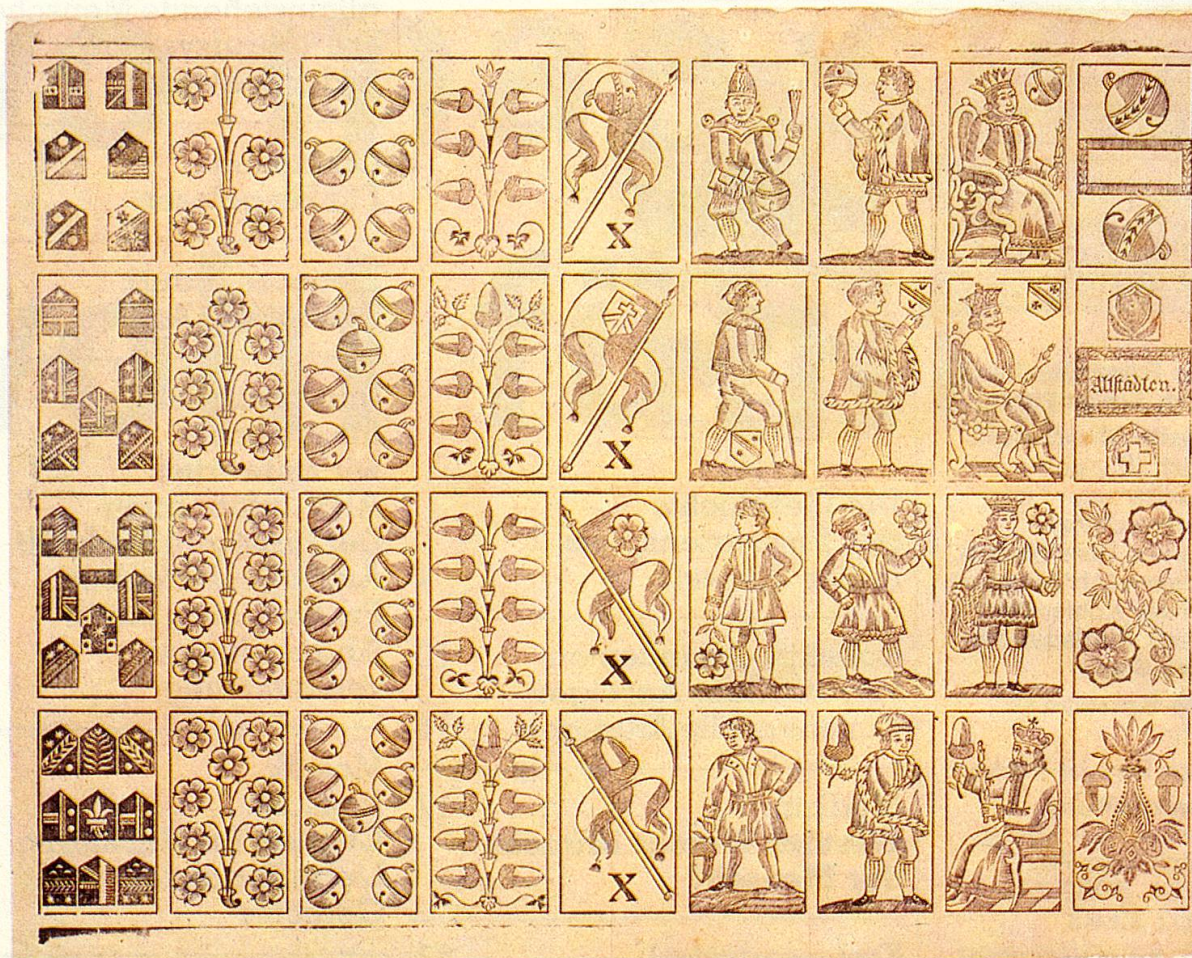 X
X
Altstädten.
X
X